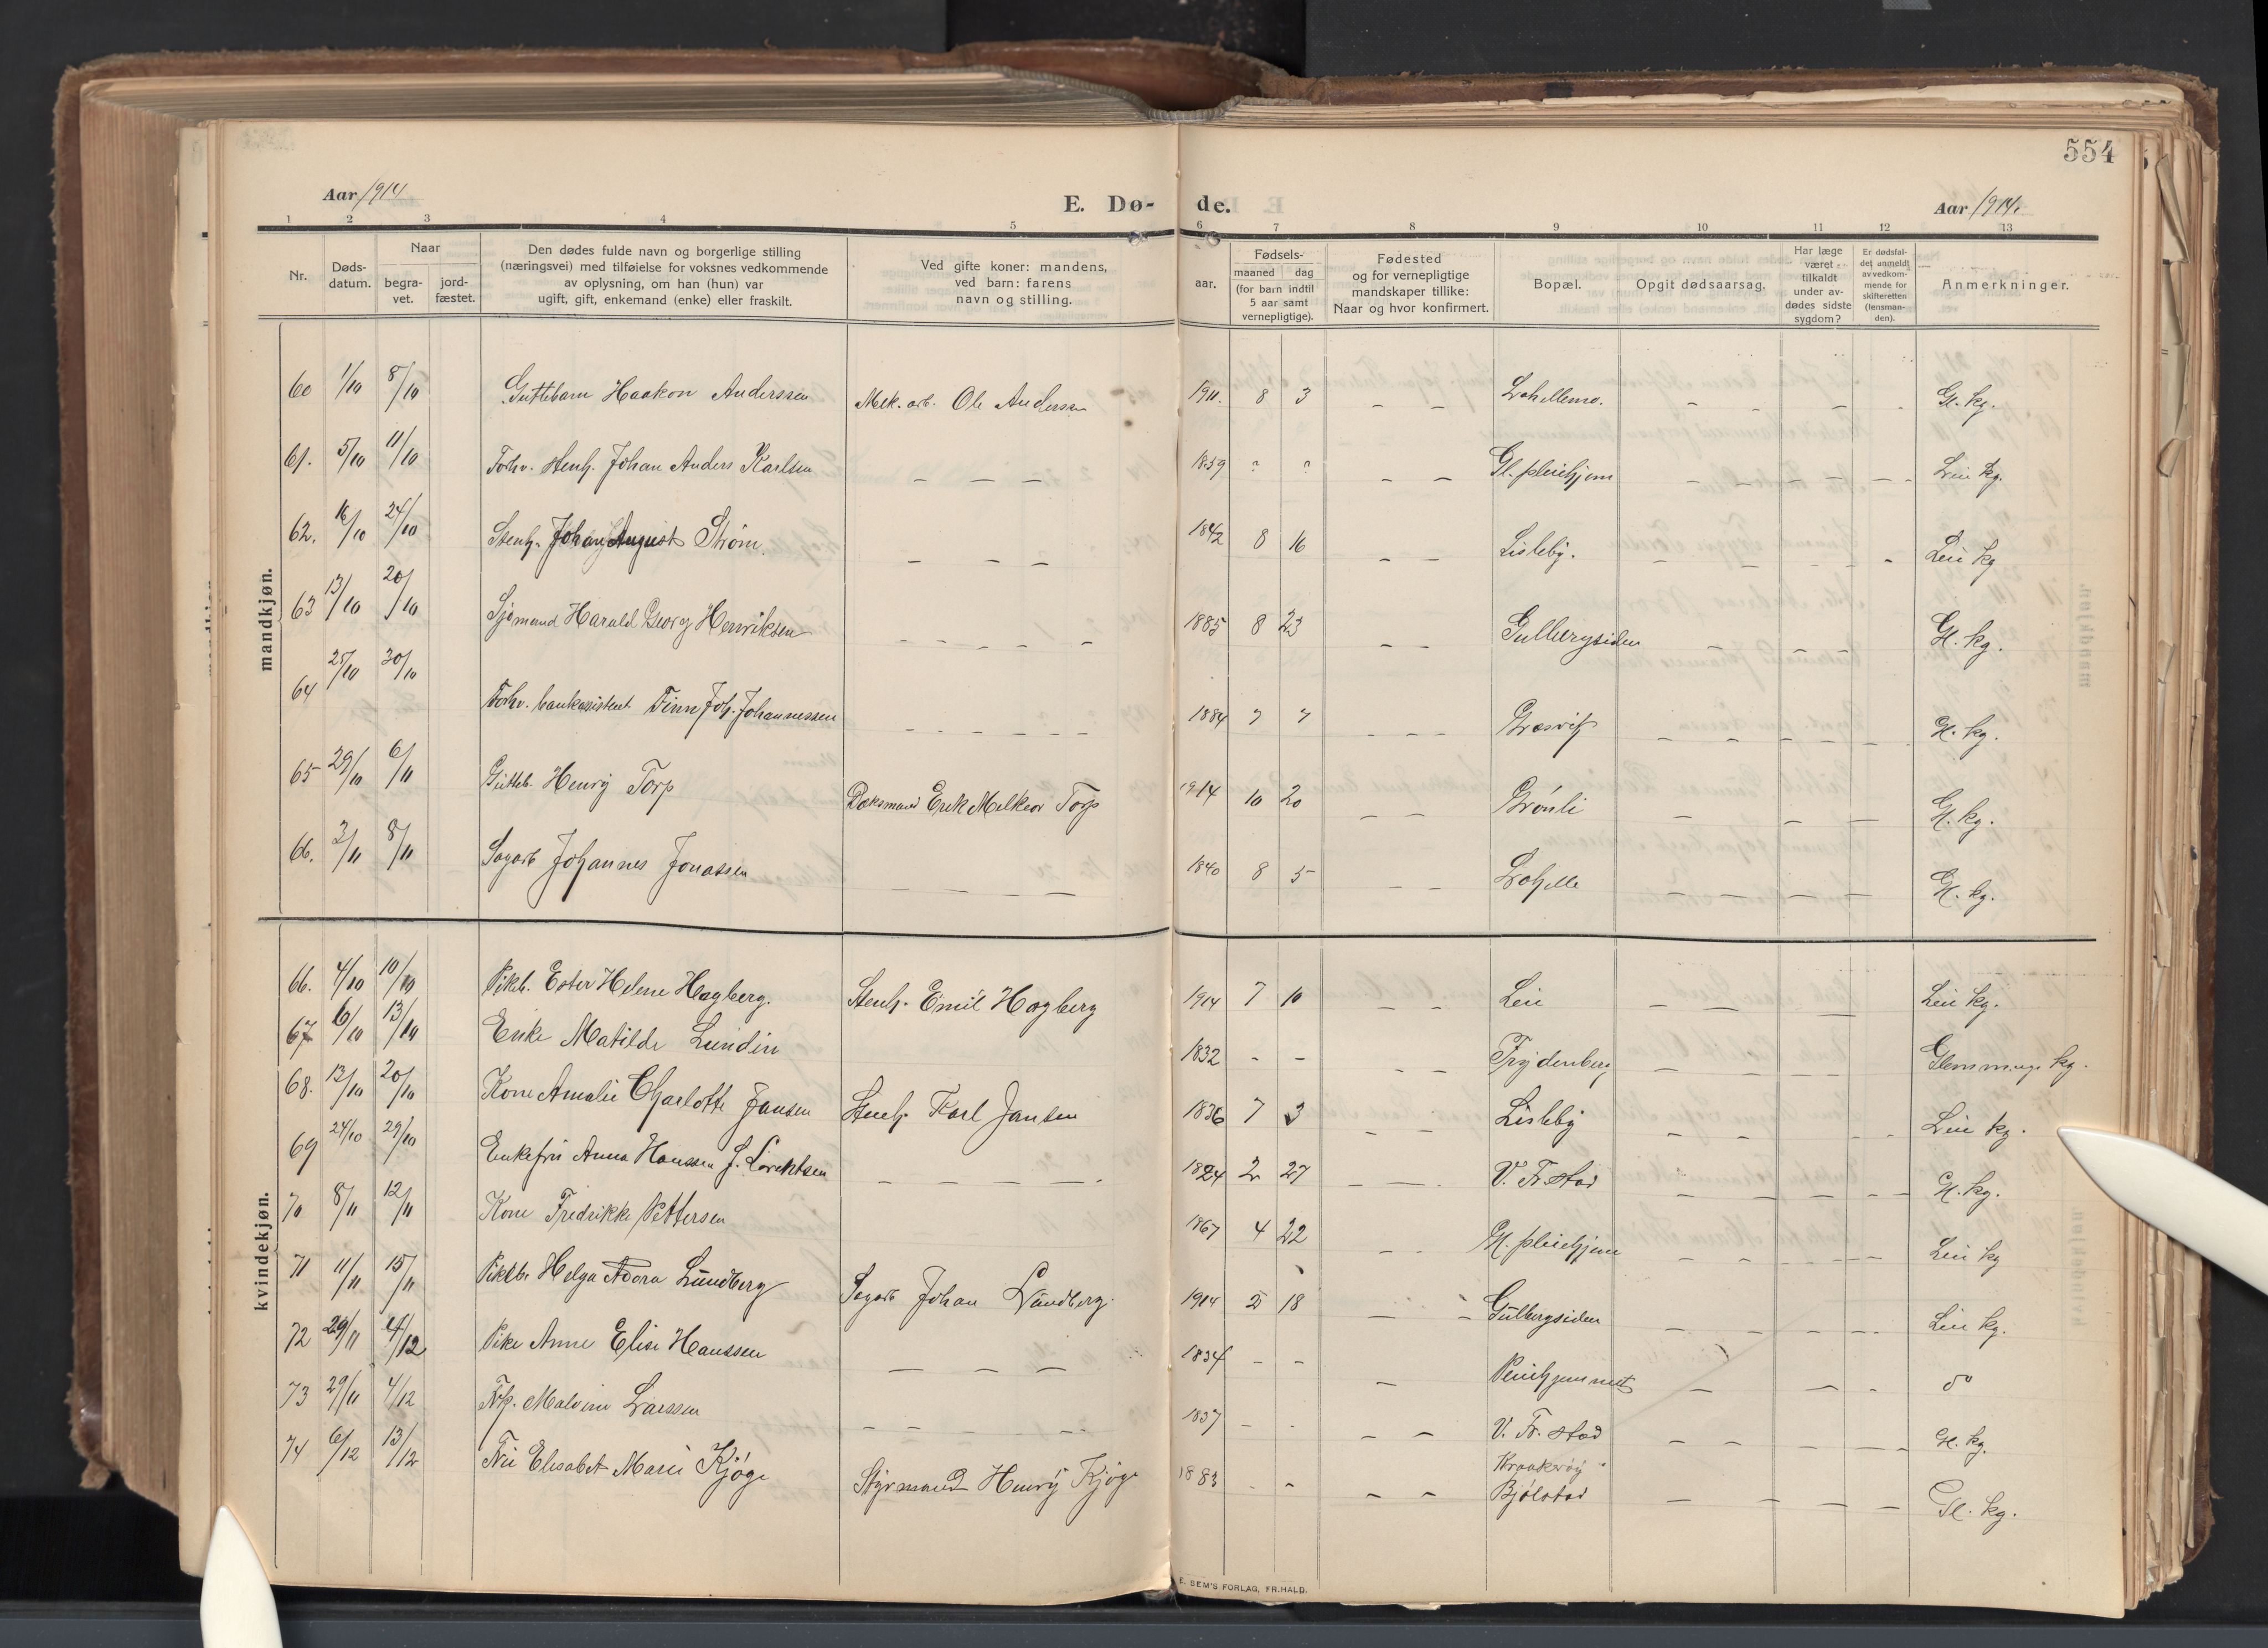 554
Aar 1914
E. Dø-
de.
Aar 1914.
1 2 3 4 5 6 7 8 9 10 11 12 13
Nr.
Døds-
datum.
Naar
begra-
vet.
jord-
fæstet.
Den dødes fulde navn og borgerlige stilling
(næringsvei) med tilføielse for voksnes vedkommende
av oplysning, om han (hun) var
ugift, gift, enkemand (enke) eller fraskilt.
Ved gifte koner: mandens,
ved barn: farens
navn og stilling.
aar.
Fødsels-
maaned dag
(for barn indtil
5 aar samt
vernepligtige).
Fødested
og for vernepligtige
mandskaper tillike:
Naar og hvor konfirmert.
Bopæl.
Opgit dødsaarsag.
Har læge
været
tilkaldt
under av-
dødes sidste
sygdom?
Er dødsfal-
det anmeldt
av vedkom-
mende for
skifteretten
(lensman-
den).
Anmerkninger.
mandkjøn.
60 1/10 8/10 Guttebarn Haakon Anderssen Mek. arb. Ole Anderssen 1911. 8 3 – – – – – - Gl. kg.
61. 5/10 11/10 Forhv. stenh. Johan Anders Karlsen – – – 1839 ? ? – – Gl. pleiehjem – – – – – – Leie kg.
62. 16/10 24/10 Stenh. Johan August Strøm. – – – 1842 8 16 – – Lisleby. – – – – - Leie kg
63 13/10 20/10 Sjømand Harald Georg Henriksen – – – – – 1885 8 23 – – Gulbergsiden – – – Gl. kg.
64 25/10 30/10 Forhv. bankassistent Finn Joh. Johannessen – – – – – – 1884 7 7 – – – Græsvik – – – – – – Gl. kg.
65 29/10 6/11 Gutteb. Henry Torp Dæksmand Erik Melkior Torp 1914 10 20 – – Grønli – – – Gl. kg.
66. 3/11 8/11 Sagarb Johannes Jonassen – – – – 1840 8 5 – – – – – – – Gl. kg.
kvindekjøn.
66. 4/10 10/10 Pikeb. Ester Helene Hagberg. Stenh. Emil Hagberg 1914 7 10 – – Leie – – – Leie kg.
67 6/10 13/10 Enke Matilde Lundin 1832 - – – – Frydenberg – – – – Glemminge kg.
68. 13/10 20/10 Kone Amalie Charlotte Jansen Stenh. Karl Jansen 1836 7 3 – – Lisleby – – - - Leie kg.
69 24/10 29/10 Enkefru Anna Hanssen f. Lorentsen – – – – –. 1824 2 27 – – –. V. Fr.stad – – – – – Gl. kg.
70 8/11 12/11 Kone Fredrikke Pettersen 1867 4 22 – – Gl. pleiehjem – – – – Leie kg
71 11/11 15/11 Pikeb. Helga Adora Lundberg Sagarb Johan Lundberg. 1914 5 18 – – Gulbergsiden – – – – Leie kg.
72 29/11 4/12 Pike Anne Elise Hanssen – – – – 1834 – – – Pleiehjemmet – – - do
73 29/11 4/12 Malvine Larssen – – – – – 1837 – - – – V. Fr. stad – – – – – Gl. kg.
74 6/12 13/12 Fru Elisabet Marie Kjøge Styrmand Henry Kjøge 1883 - – – – Kraakerøy
Bjølstad – – – – Gl. kg.
E. SEM'S FORLAG, FR.HALD.